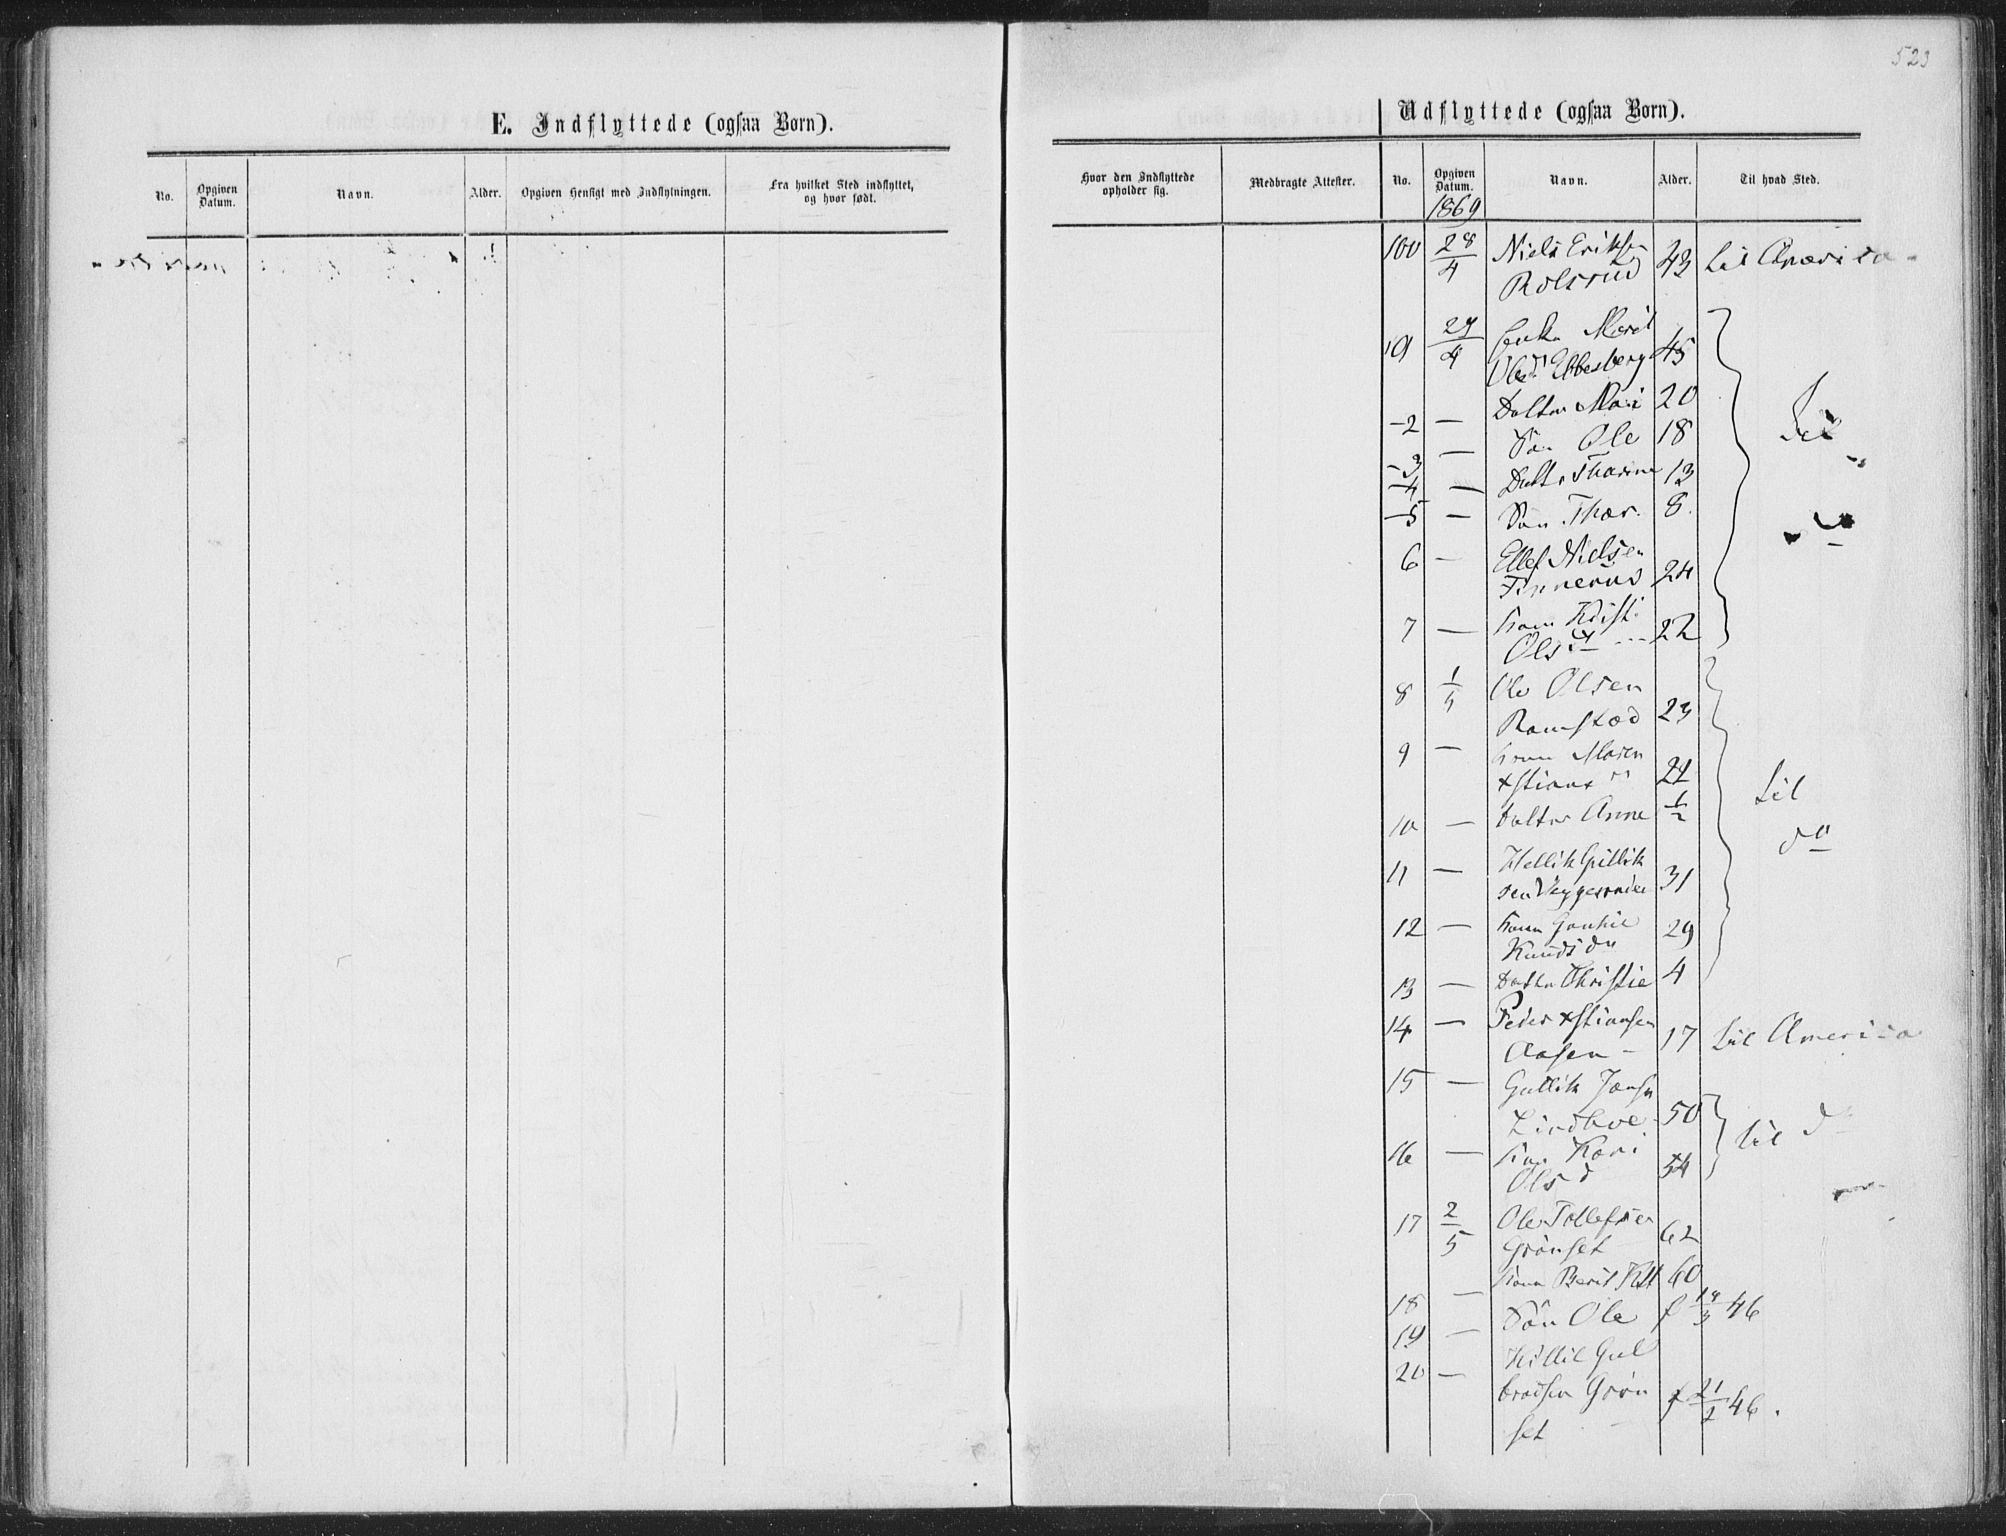 523
E. Indflyttede (ogsaa Børn).
No.
Opgiven Datum.
Navn.
Alder.
Opgiven Hensigt med Indflytningen.
Fra hvilket Sted indflyttet, og hvor født.
Udflyttede (ogsaa Børn).
Hvor den Indflyttede opholder sig.
Medbragte Attester.
No.
Opgiven Datum.
Navn.
Alder.
Til hvad Sted.
1869
100 28/4 Niels Eriksen
Rolsrud 43 til America
101 29/4 Enke Marit
Olsd. Ebbesberg 45
-2 — Datter Mari 20
-3 — Søn Ole 18
til
-4 — Datter Thorine 13
-5 — Søn Thor 8
6 — Ellef Nielsen
Finnerud 24
7 — Kone Kristi
Olsd 22
8 1/5 Ole Olsen
Ramstad 23
9 — Kone Maren
Xstians 24
10 — Datter Anne 1/2
til
do
11 — Hellik Gullik
sen 31
12 — Kone Gunhil
Knudsdn 29
13 — Datter Christie 4
14 — Peder Xstiansen
Aasen 17 til America
15 — Gullik Jonsen
50
16 — Kone Kari
Olsd 54
til d
17 2/5 Ole Tollefsen
Grønset 62
18 — Kone Berit 60
19 — Søn Ole f 18/3 46
20 — Killil Gul
brandsen Grøn
set f 21/2 46.